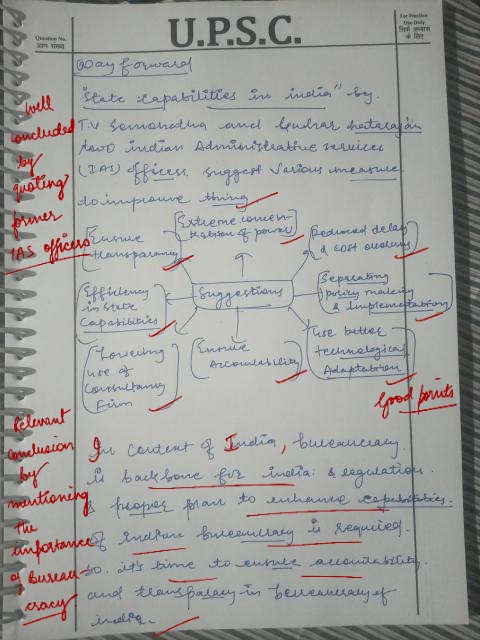 Question No.
प्रश्न संख्या
U.P.S.C.
For Practice
Use Only
सिर्फ अभ्यास
के लिए
Way forward
"State Capabilities in india" by
T.V Somanadha and Gulzar natarajan
two indian Administrative services
(IAS) officers suggest various measure
to improve thing
Ensure
transparency
Extreme concen-
tration of power
Reduced delay
& cost overruns
Efficiency
in State
Capabilities
Suggestions
Separating
policy making
& Implementation
Lowering
use of
Consultancy
Firm
Ensure
Accountability
Use better
technological
Adaptation
In context of India, bureaucracy
is backbone for india & regulation
& proper plan to enhance capabilities
of indian bureaucracy is required.
so it's time to ensure accountability
and transparacy in beureaucracy of
india.
Well
concluded
by
quoting
former
IAS officers
Good points
Relevant
conclusion
by
mentioning
the
importance
of Bureau-
cracy